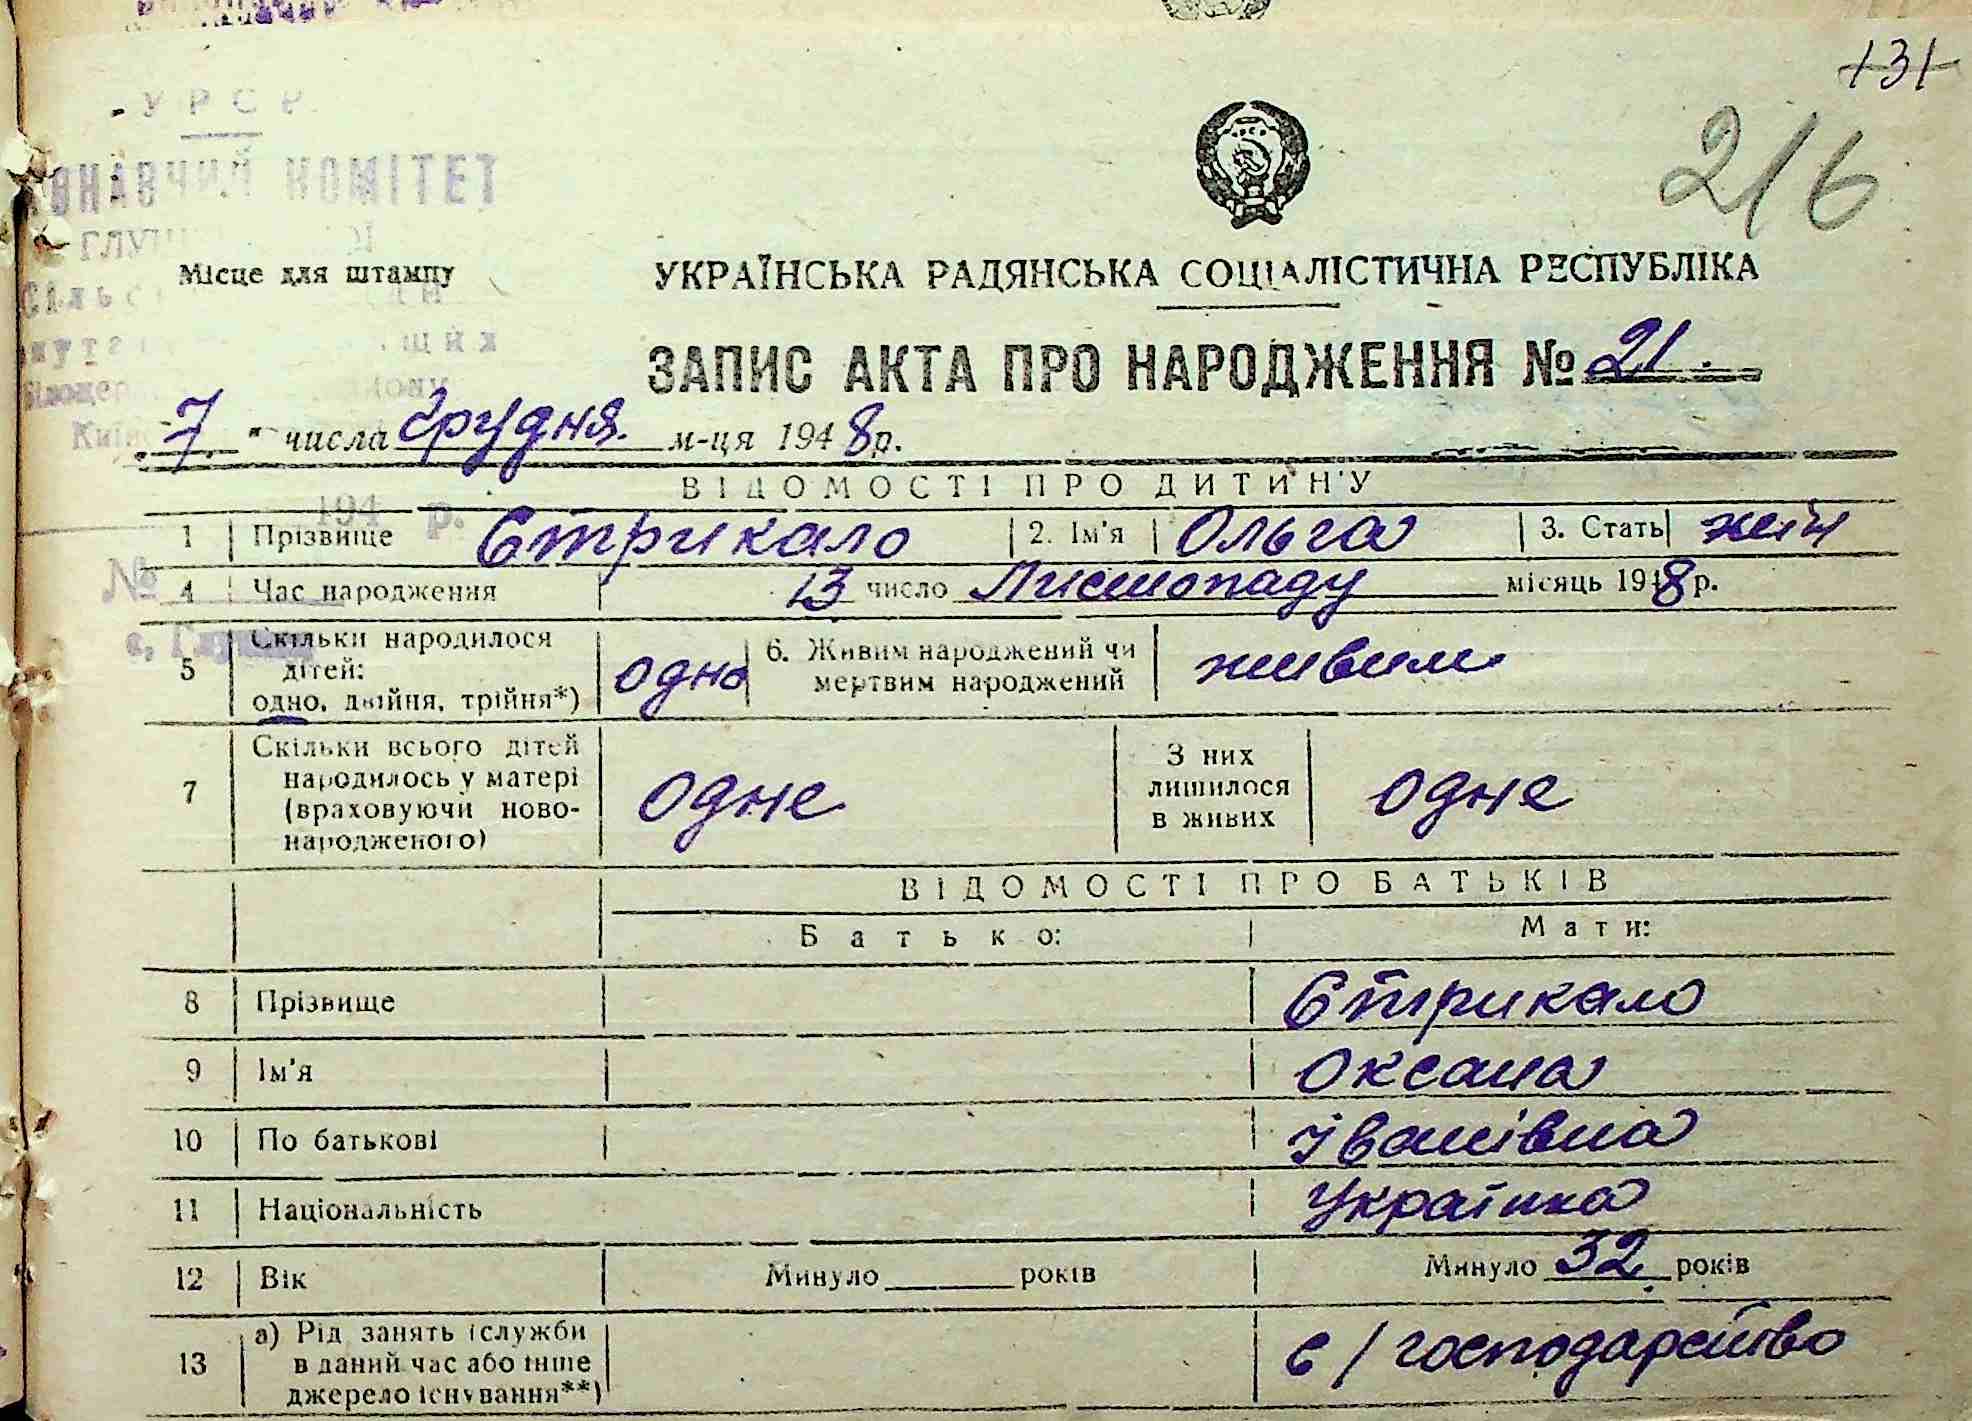 131
216
У Р С Р
КОМІТЕТ
Місце для штампу
УКРАЇНСЬКА РАДЯНСЬКА СОЦІАЛІСТИЧНА РЕСПУБЛІКА
ЗАПИС АКТА ПРО НАРОДЖЕННЯ № 21.
"7" числа грудня м-ця 1948р.
194 р.
ВІДОМОСТІ ПРО ДИТИНУ
1 Прізвище Стрикало 2. Ім'я Ольга 3. Стать жін
№
4 Час народження 13 число Листопаду місяць 1948р.
5 Скільки народилося дітей: одно, двійня, трійня*) одно 6. Живим народжений чи мертвим народжений живим
7 Скільки всього дітей народилось у матері (враховуючи новонародженого) одне З них лишилося в живих одне
ВІДОМОСТІ ПРО БАТЬКІВ
Батько: Мати:
8 Прізвище Стрикало
9 Ім'я Оксана
10 По батькові Іванівна
11 Національність Українка
12 Вік Минуло ______ років Минуло 32 років
13 а) Рід занять (служби в даний час або інше джерело існування**) с/господарство